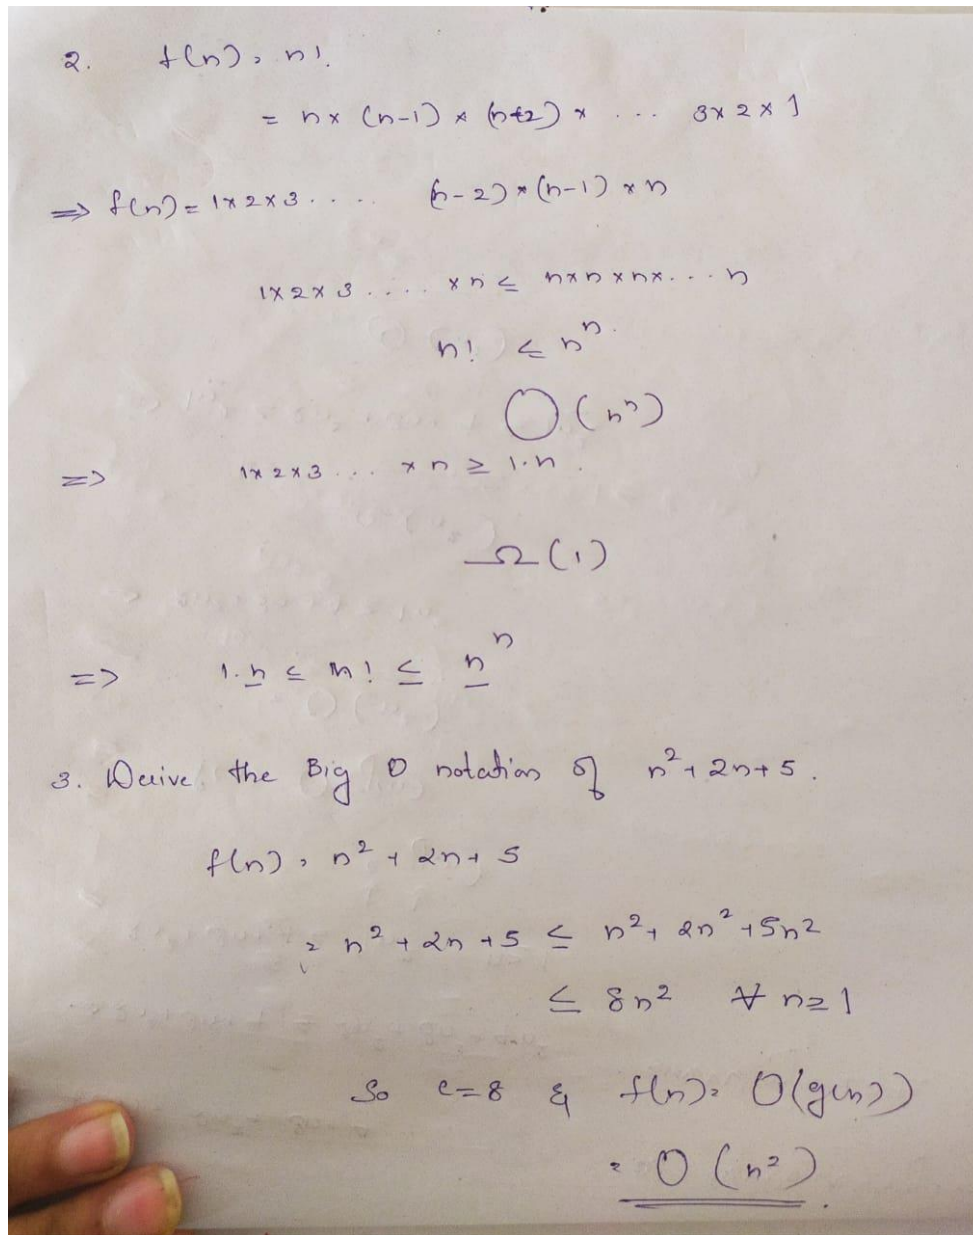 2. f(n) = n!
= n × (n-1) × (n-2) × ... 3 × 2 × 1
=> f(n) = 1 × 2 × 3 .... (n-2) × (n-1) × n
1 × 2 × 3 .... × n ≤ n × n × n × ... n
n! ≤ nⁿ.
O(nⁿ)
=> 1 × 2 × 3 ... × n ≥ 1.n.
Ω(1)
=> 1.n ≤ n! ≤ nⁿ
3. Derive the Big O notation of n² + 2n + 5.
f(n) = n² + 2n + 5
= n² + 2n + 5 ≤ n² + 2n² + 5n²
≤ 8n² ∀ n ≥ 1
So c = 8 & f(n) = O(g(n))
= O(n²).